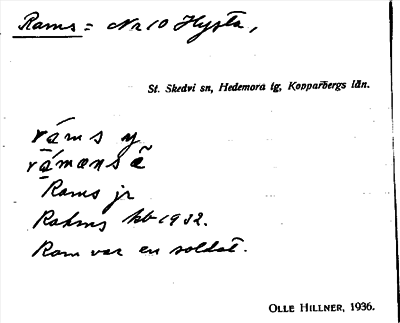 Rams = Nr 10 Hyfta,
St. Skedvi sn, Hedemora tg, Kopparbergs län.
ráms y
rámansã
Rams jr
Rahms kb 1932.
Ram var en soldat.
OLLE HILLNER, 1936.